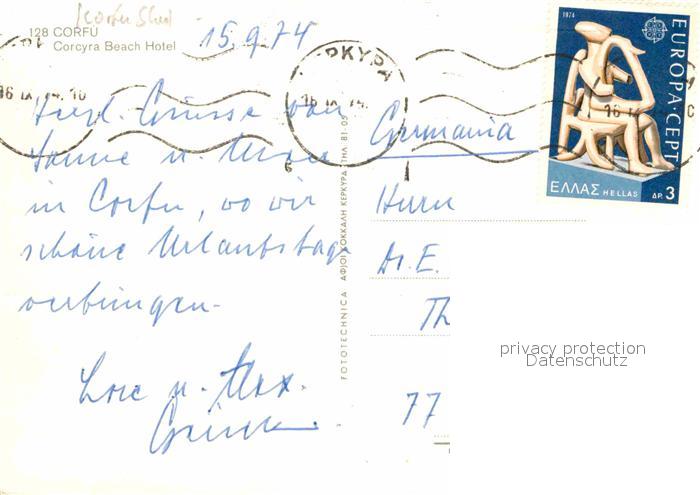 Korfu Stadt
128 CORFU
Corcyra Beach Hotel
15.9.74
ΚΕΡΚΥΡΑ
16 IX 74. 10
16 IX 74.
16 IX
1974
EUROPA·CEPT
ΕΛΛΑΣ HELLAS ΔΡ. 3
Herzl. Grüsse von
Sonne u. Meer
in Corfu, wo wir
schöne Urlaubstage
verbringen.
Lore u. Max
FOTOTECHNICA ΑΦΟΙ ΚΟΚΚΑΛΗ ΚΕΡΚΥΡΑ ΤΗΛ. 81-05
Germania
Herrn
Dr. E.
Th
77
privacy protection
Datenschutz